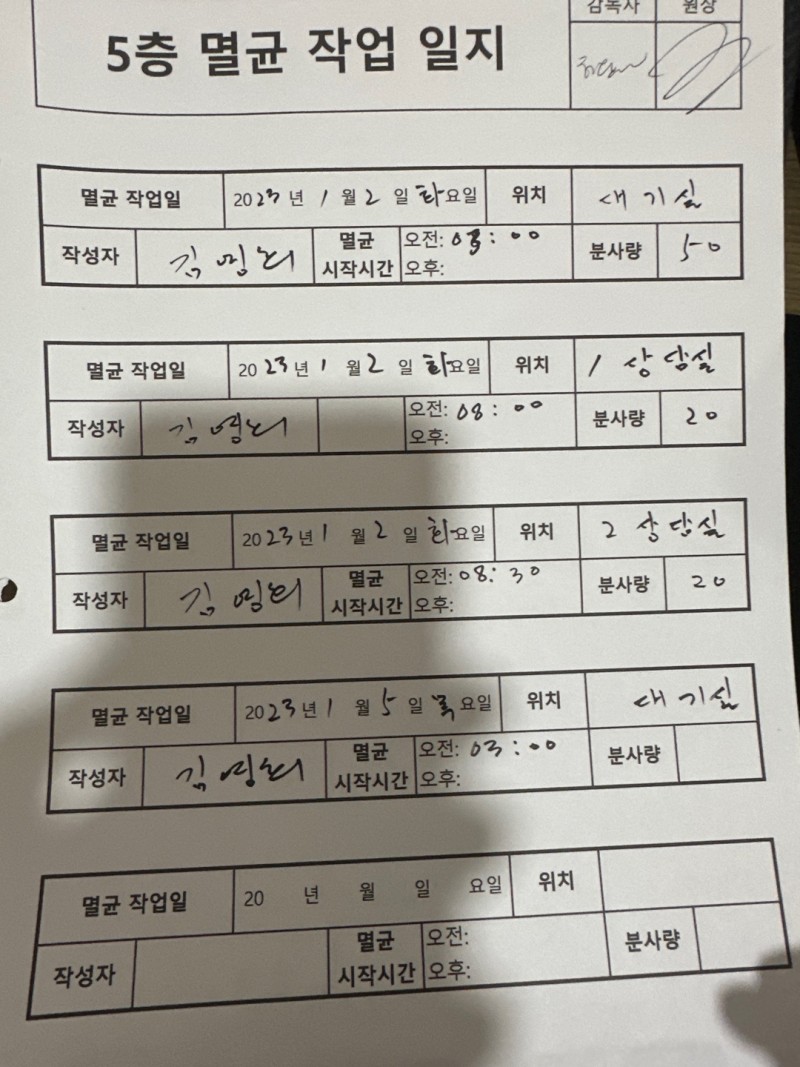 감독자 원장
5층 멸균 작업 일지
멸균 작업일 2023년 1월 2일 화요일 위치 대기실
작성자 김영희 멸균 시작시간 오전: 03:00 분사량 50
오후:
멸균 작업일 2023년 1월 2일 화요일 위치 1 상담실
작성자 김영희 오전: 08:00 분사량 20
오후:
멸균 작업일 2023년 1월 2일 화요일 위치 2 상담실
작성자 김영희 멸균 시작시간 오전: 08:30 분사량 20
오후:
멸균 작업일 2023년 1월 5일 목요일 위치 대기실
작성자 김영희 멸균 시작시간 오전: 03:00 분사량
오후:
멸균 작업일 20 년 월 일 요일 위치
작성자 멸균 시작시간 오전: 분사량
오후: